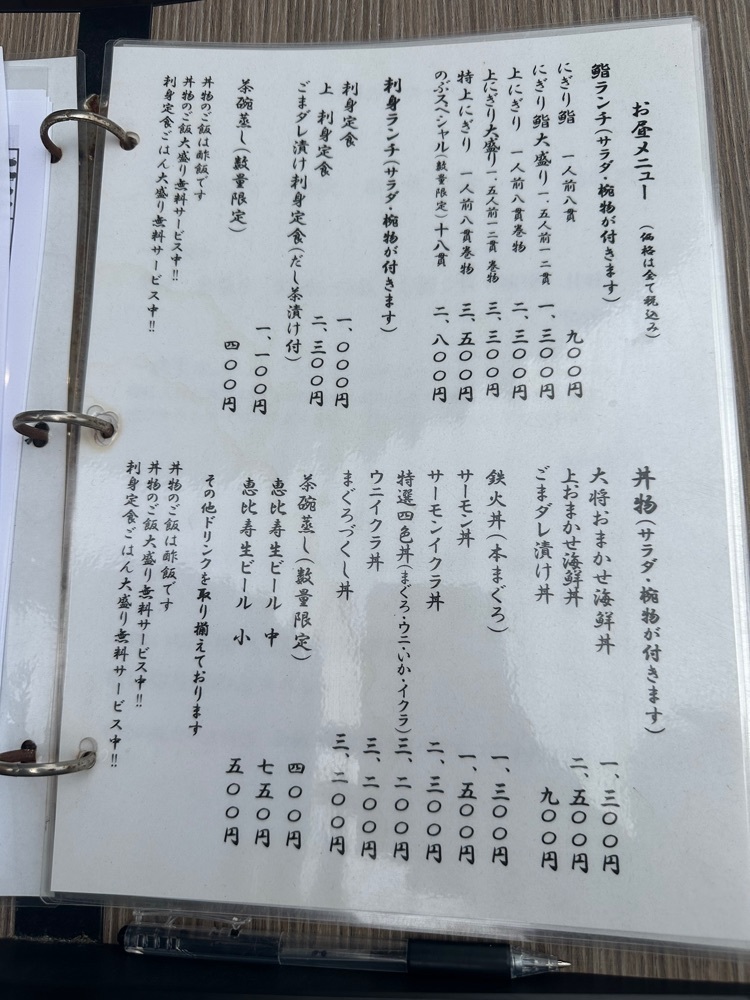 お昼メニュー (価格は全て税込み)
鮨ランチ(サラダ・椀物が付きます)
にぎり鮨 一人前八貫 九〇〇円
にぎり鮨大盛り 一、五人前一二貫 一、三〇〇円
上にぎり 一人前八貫巻物 二、三〇〇円
上にぎり大盛り 一、五人前一二貫 巻物 三、三〇〇円
特上にぎり 一人前八貫巻物 三、五〇〇円
のぶスペシャル(数量限定)十八貫 二、八〇〇円
刺身ランチ(サラダ・椀物が付きます)
刺身定食 一、〇〇〇円
上 刺身定食 二、三〇〇円
ごまダレ漬け刺身定食(だし茶漬け付) 一、一〇〇円
茶碗蒸し(数量限定) 四〇〇円
丼物のご飯は酢飯です
丼物のご飯大盛り無料サービス中!!
刺身定食ごはん大盛り無料サービス中!!
丼物(サラダ・椀物が付きます)
大将おまかせ海鮮丼 一、三〇〇円
上おまかせ海鮮丼 二、五〇〇円
ごまダレ漬け丼 九〇〇円
鉄火丼(本まぐろ) 一、三〇〇円
サーモン丼 一、五〇〇円
サーモンイクラ丼 二、三〇〇円
特選四色丼(まぐろ・ウニ・いか・イクラ) 三、二〇〇円
ウニイクラ丼 三、二〇〇円
まぐろづくし丼 三、二〇〇円
茶碗蒸し(数量限定) 四〇〇円
恵比寿生ビール 中 七五〇円
恵比寿生ビール 小 五〇〇円
その他ドリンクを取り揃えております
丼物のご飯は酢飯です
丼物のご飯大盛り無料サービス中!!
刺身定食ごはん大盛り無料サービス中!!